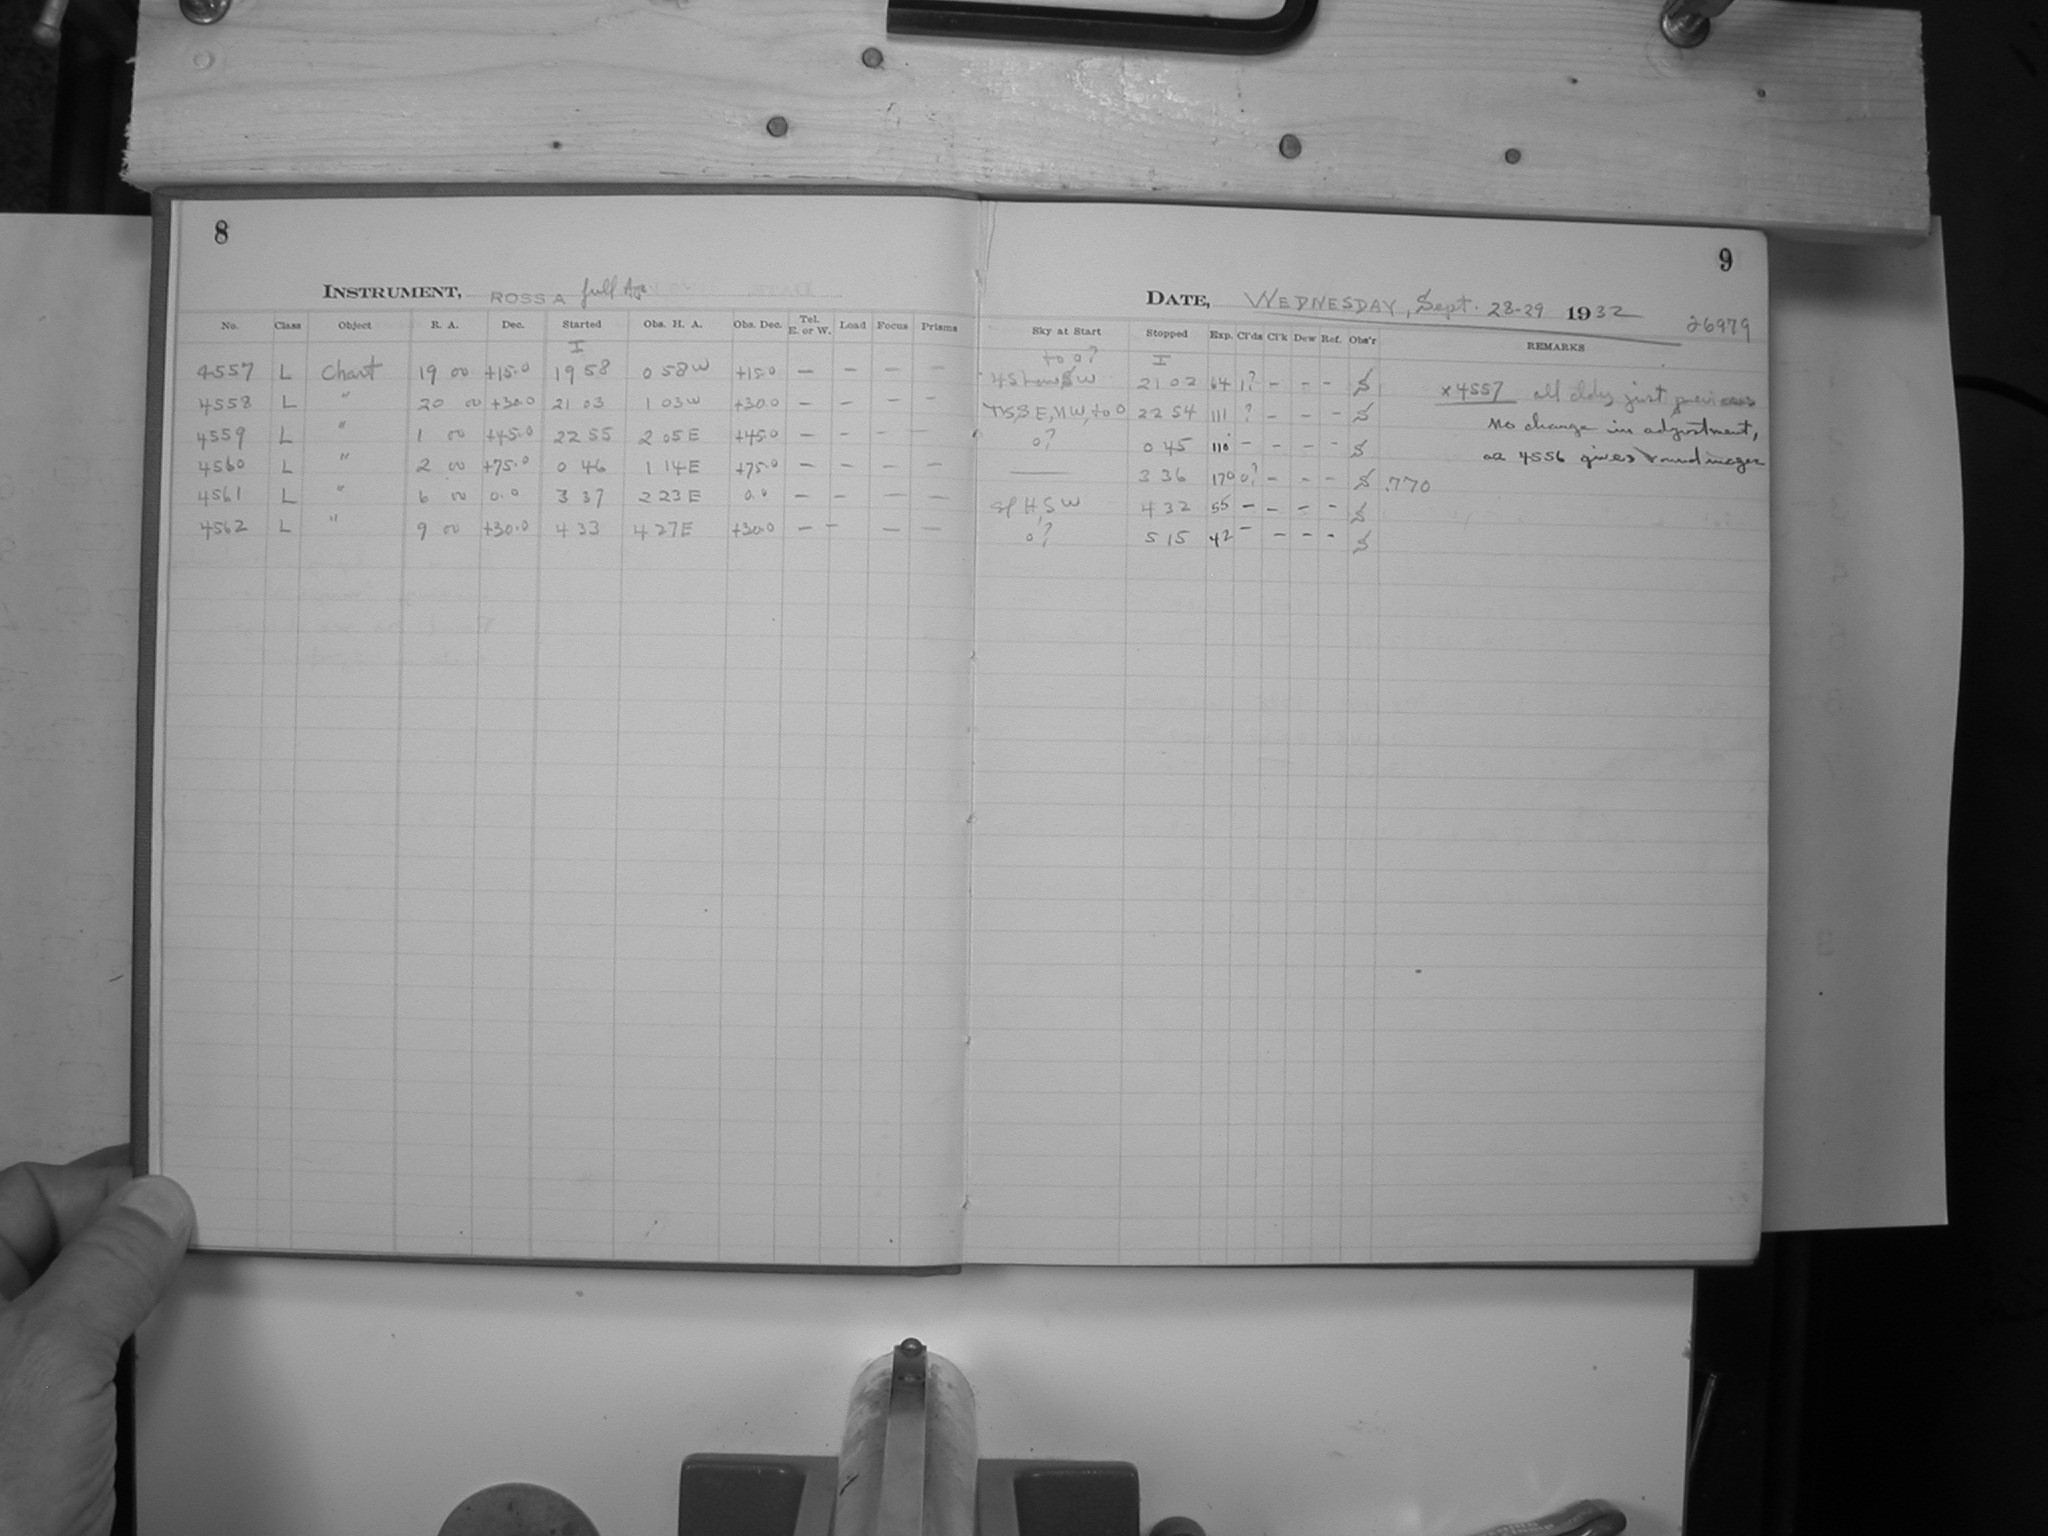 8
INSTRUMENT, ROSS A full Ap.
No. Class Object R. A. Dec. Started Obs. H. A. Obs. Dec. Tel. E. or W. Load Focus Prisms
I
4557 L Chart 19 00 +15.0 19 58 0 58 W +15.0 — — — —
4558 L " 20 00 +30.0 21 03 1 03 W +30.0 — — — —
4559 L " 1 00 +45.0 22 55 2 05 E +45.0 — — — —
4560 L " 2 00 +75.0 0 46 1 14 E +75.0 — — — —
4561 L " 6 00 0.0 3 37 2 23 E 0.0 — — — —
4562 L " 9 00 +30.0 4 33 4 27 E +30.0 — — — —
9
DATE, WEDNESDAY, Sept. 28-29 1932
26979
Sky at Start Stopped Exp. Cl'ds Cl'k Dew Ref. Obs'r REMARKS
to 0? I
SW 21 02 64 1? - - - S x 4557 all cldy just previous
SE, NW, to 0 22 54 111 ? - - - S No change in adjustment,
0? 0 45 110 - - - - S as 4556 gives round images
—— 3 36 170 0? - - - S .770
Sl H, SW 4 32 55 - - - - S
0? 5 15 42 - - - - S